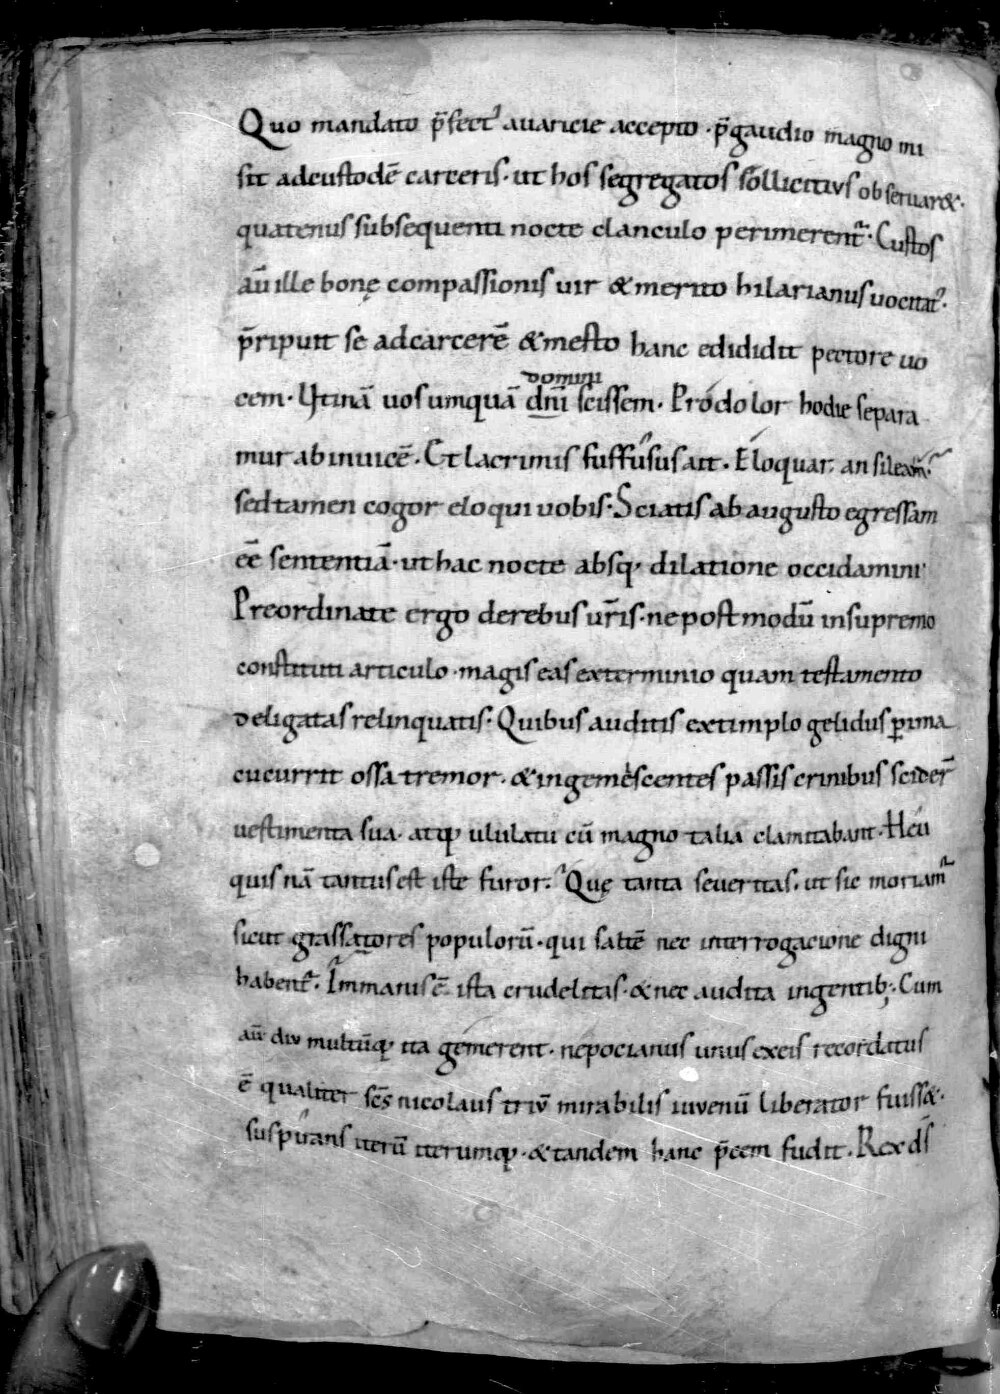 Quo mandato p̄fect᾽ auaricie accepto · p̄ gaudio magno mi
sit ad custodē carceris · ut hos segregatos sollicitius obseruar&·
quatenus subsequenti nocte clanculo perimerent᷑· Custos
aū ille bonę compassionis uir & merito hilarianus uocitat᷑·
p̄ripuit se ad carcerē & mesto hanc edididit pectore uo
cem· Utinā uos umquā dn̄i scissem· Pro dolor hodie separa
domini
mur ab inuicē· Et lacrimis suffusus ait· Eloquar an sileam᷑
sed tamen cogor eloqui uobis· Sciatis ab augusto egressam
eē sententiā· ut hac nocte absq; dilatione occidamini
Preordinate ergo de rebus ur̄is· ne post modū in supremo
constituti articulo · magis eas exterminio quam testamento
deligatas relinquatis· Quibus auditis extimplo gelidus p̱ ima
cucurrit ossa tremor· & ingemescentes passis crinibus scider̄
uestimenta sua· atq; ululatu cū magno talia clamitabant· Heu
quis nā tantus est iste furor· Quę tanta seueritas· ut sic moriam᷑
sicut grassatores populorū· qui saltē nec interrogacione digni
habent᷑· Immanis ē ista crudelitas· & nec audita in gentib;· Cum
aū diu multūq; ita gemerent· nepocianus unus ex eis recordatus
ē qualiter sc̄s nicolaus triū mirabilis iuuenū liberator fuiss&·
suspirans iterū iterumq;· & tandem hanc p̄cem fudit· Rex ds̄